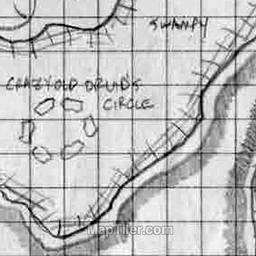 SWAMPY
CRAZY OLD DRUID'S
CIRCLE
MapTiler.com